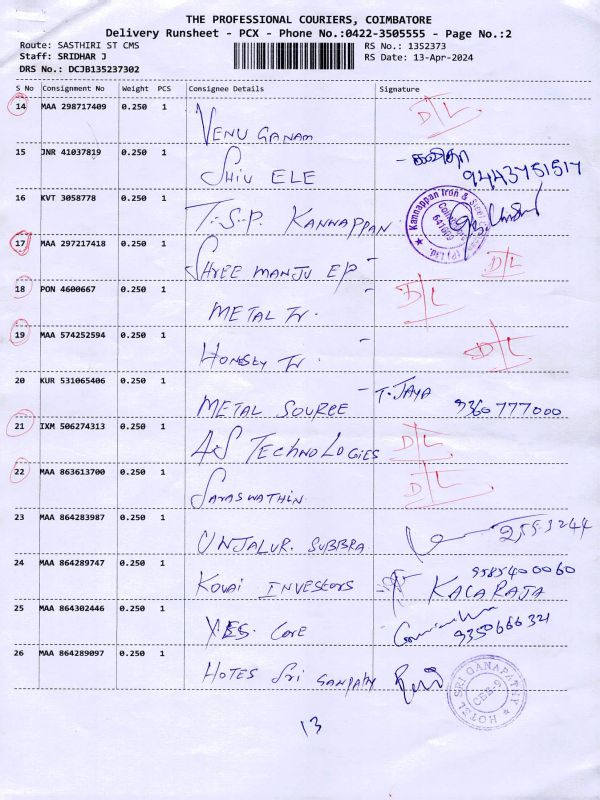 THE PROFESSIONAL COURIERS, COIMBATORE
Delivery Runsheet - PCX - Phone No.:0422-3505555 - Page No.:2
Route: SASTHIRI ST CMS
RS No.: 1352373
Staff: SRIDHAR J
RS Date: 13-Apr-2024
DRS No.: DCJB135237302
S No Consignment No Weight PCS Consignee Details Signature
14 MAA 298717409 0.250 1 VENU GANAM D/L
15 JNR 41037819 0.250 1 SHIV ELE 9443751517
16 KVT 3058778 0.250 1 T.S.P. KANNAPPAN
Kannappan Iron & Steel (P) Ltd.
17 MAA 297217418 0.250 1 SHREE MANJU EP D/L
18 PON 4600667 0.250 1 METAL Tr. D/L
19 MAA 574252594 0.250 1 HONESTY Tr. D/L
20 KUR 531065406 0.250 1 METAL SOURCE T. JAYA 9360777000
21 IXM 506274313 0.250 1 TECHNOLOGIES D/L
22 MAA 863613700 0.250 1 SARASWATHIN D/L
23 MAA 864283987 0.250 1 UNJALUR. SUBBRA
24 MAA 864289747 0.250 1 KOVAI INVESTORS 9585400060
KALARAJA
25 MAA 864302446 0.250 1 YES. CARE 9350666321
26 MAA 864289097 0.250 1 HOTES Sri GANPATHY
HOTEL SRI GANAPATHY
CBE-9
13